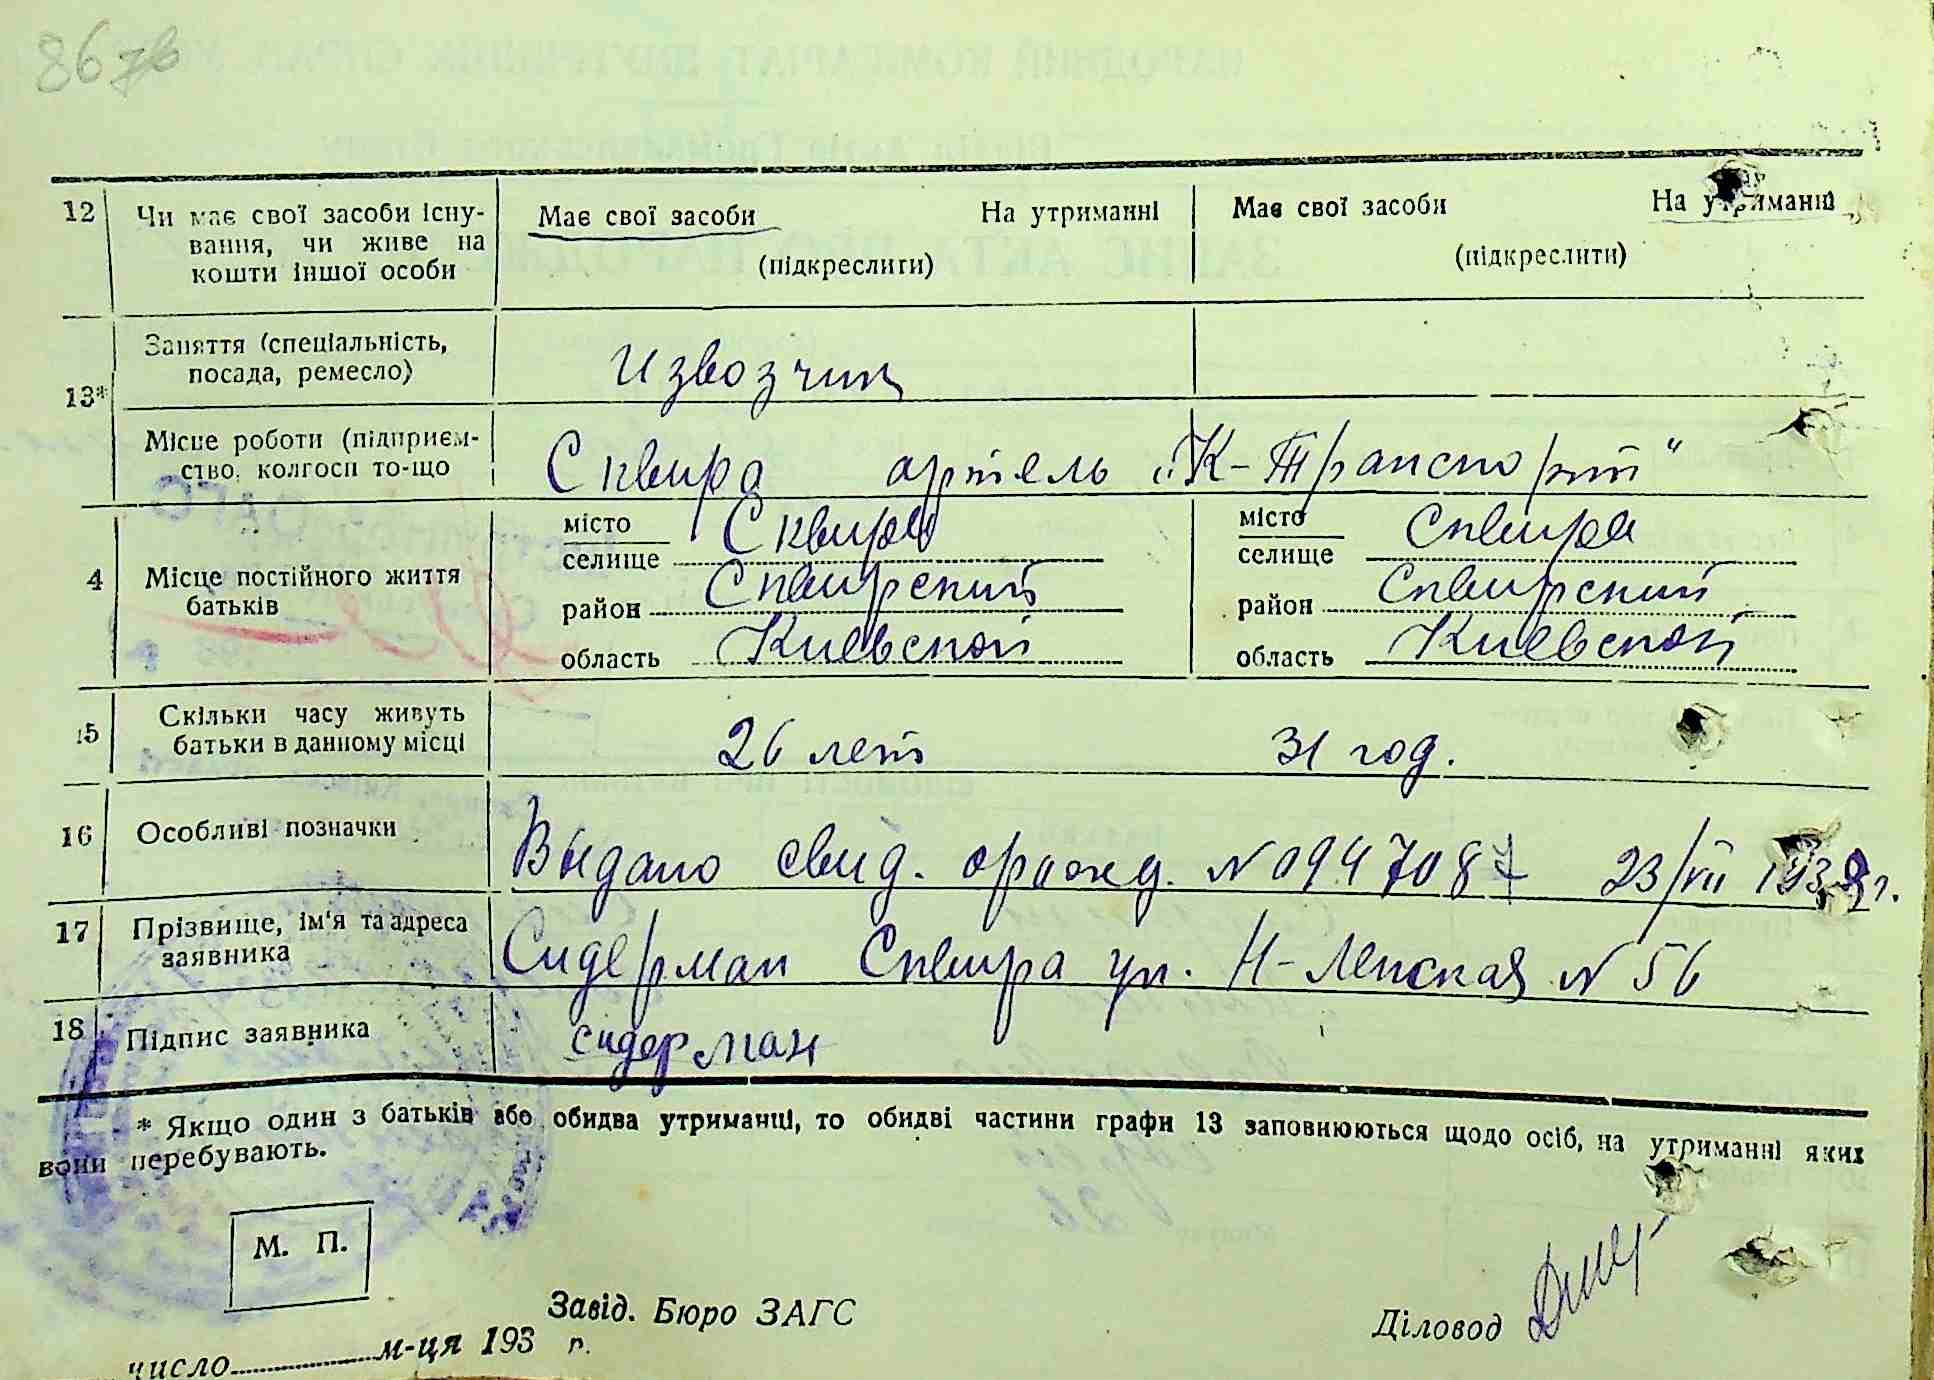 86 зв
12 Чи має свої засоби існу- Має свої засоби На утриманні Має свої засоби На утриманні
вання, чи живе на
кошти іншої особи (підкреслити) (підкреслити)
Заняття (спеціальність,
посада, ремесло) Извозчик
13*
Місце роботи (підприєм-
ство, колгосп то-що Сквира артель „К-Транспорт"
місто Сквира місто Сквира
селище селище
4 Місце постійного життя
батьків район Сквирский район Сквирский
область Киевской область Киевской
15 Скільки часу живуть
батьки в данному місці 26 лет 31 год.
16 Особливі позначки Выдано свид. о рожд. № 0947087 23/VII 1938 г.
17 Прізвище, ім'я та адреса
заявника Сидерман Сквира ул. Н-Ленская № 56
18 Підпис заявника сидерман
* Якщо один з батьків або обидва утриманці, то обидві частини графи 13 заповнюються щодо осіб, на утриманні яких
вони перебувають.
М. П.
Завід. Бюро ЗАГС
Діловод
число м-ця 193 р.